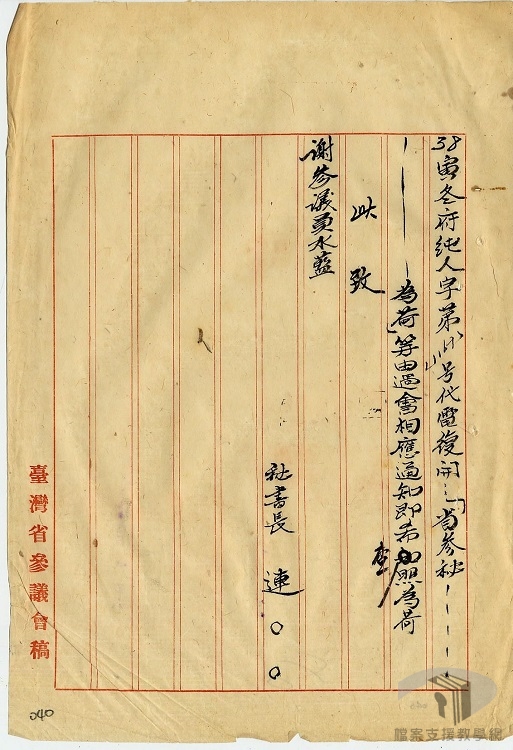 38寅冬府純人字第 号代電復開：「省參秘————
———為荷」等由過會相應通知即希查照為荷
此致
謝參議員水藍
秘書長 連○○
臺灣省參議會稿
240
檔案支援教學網